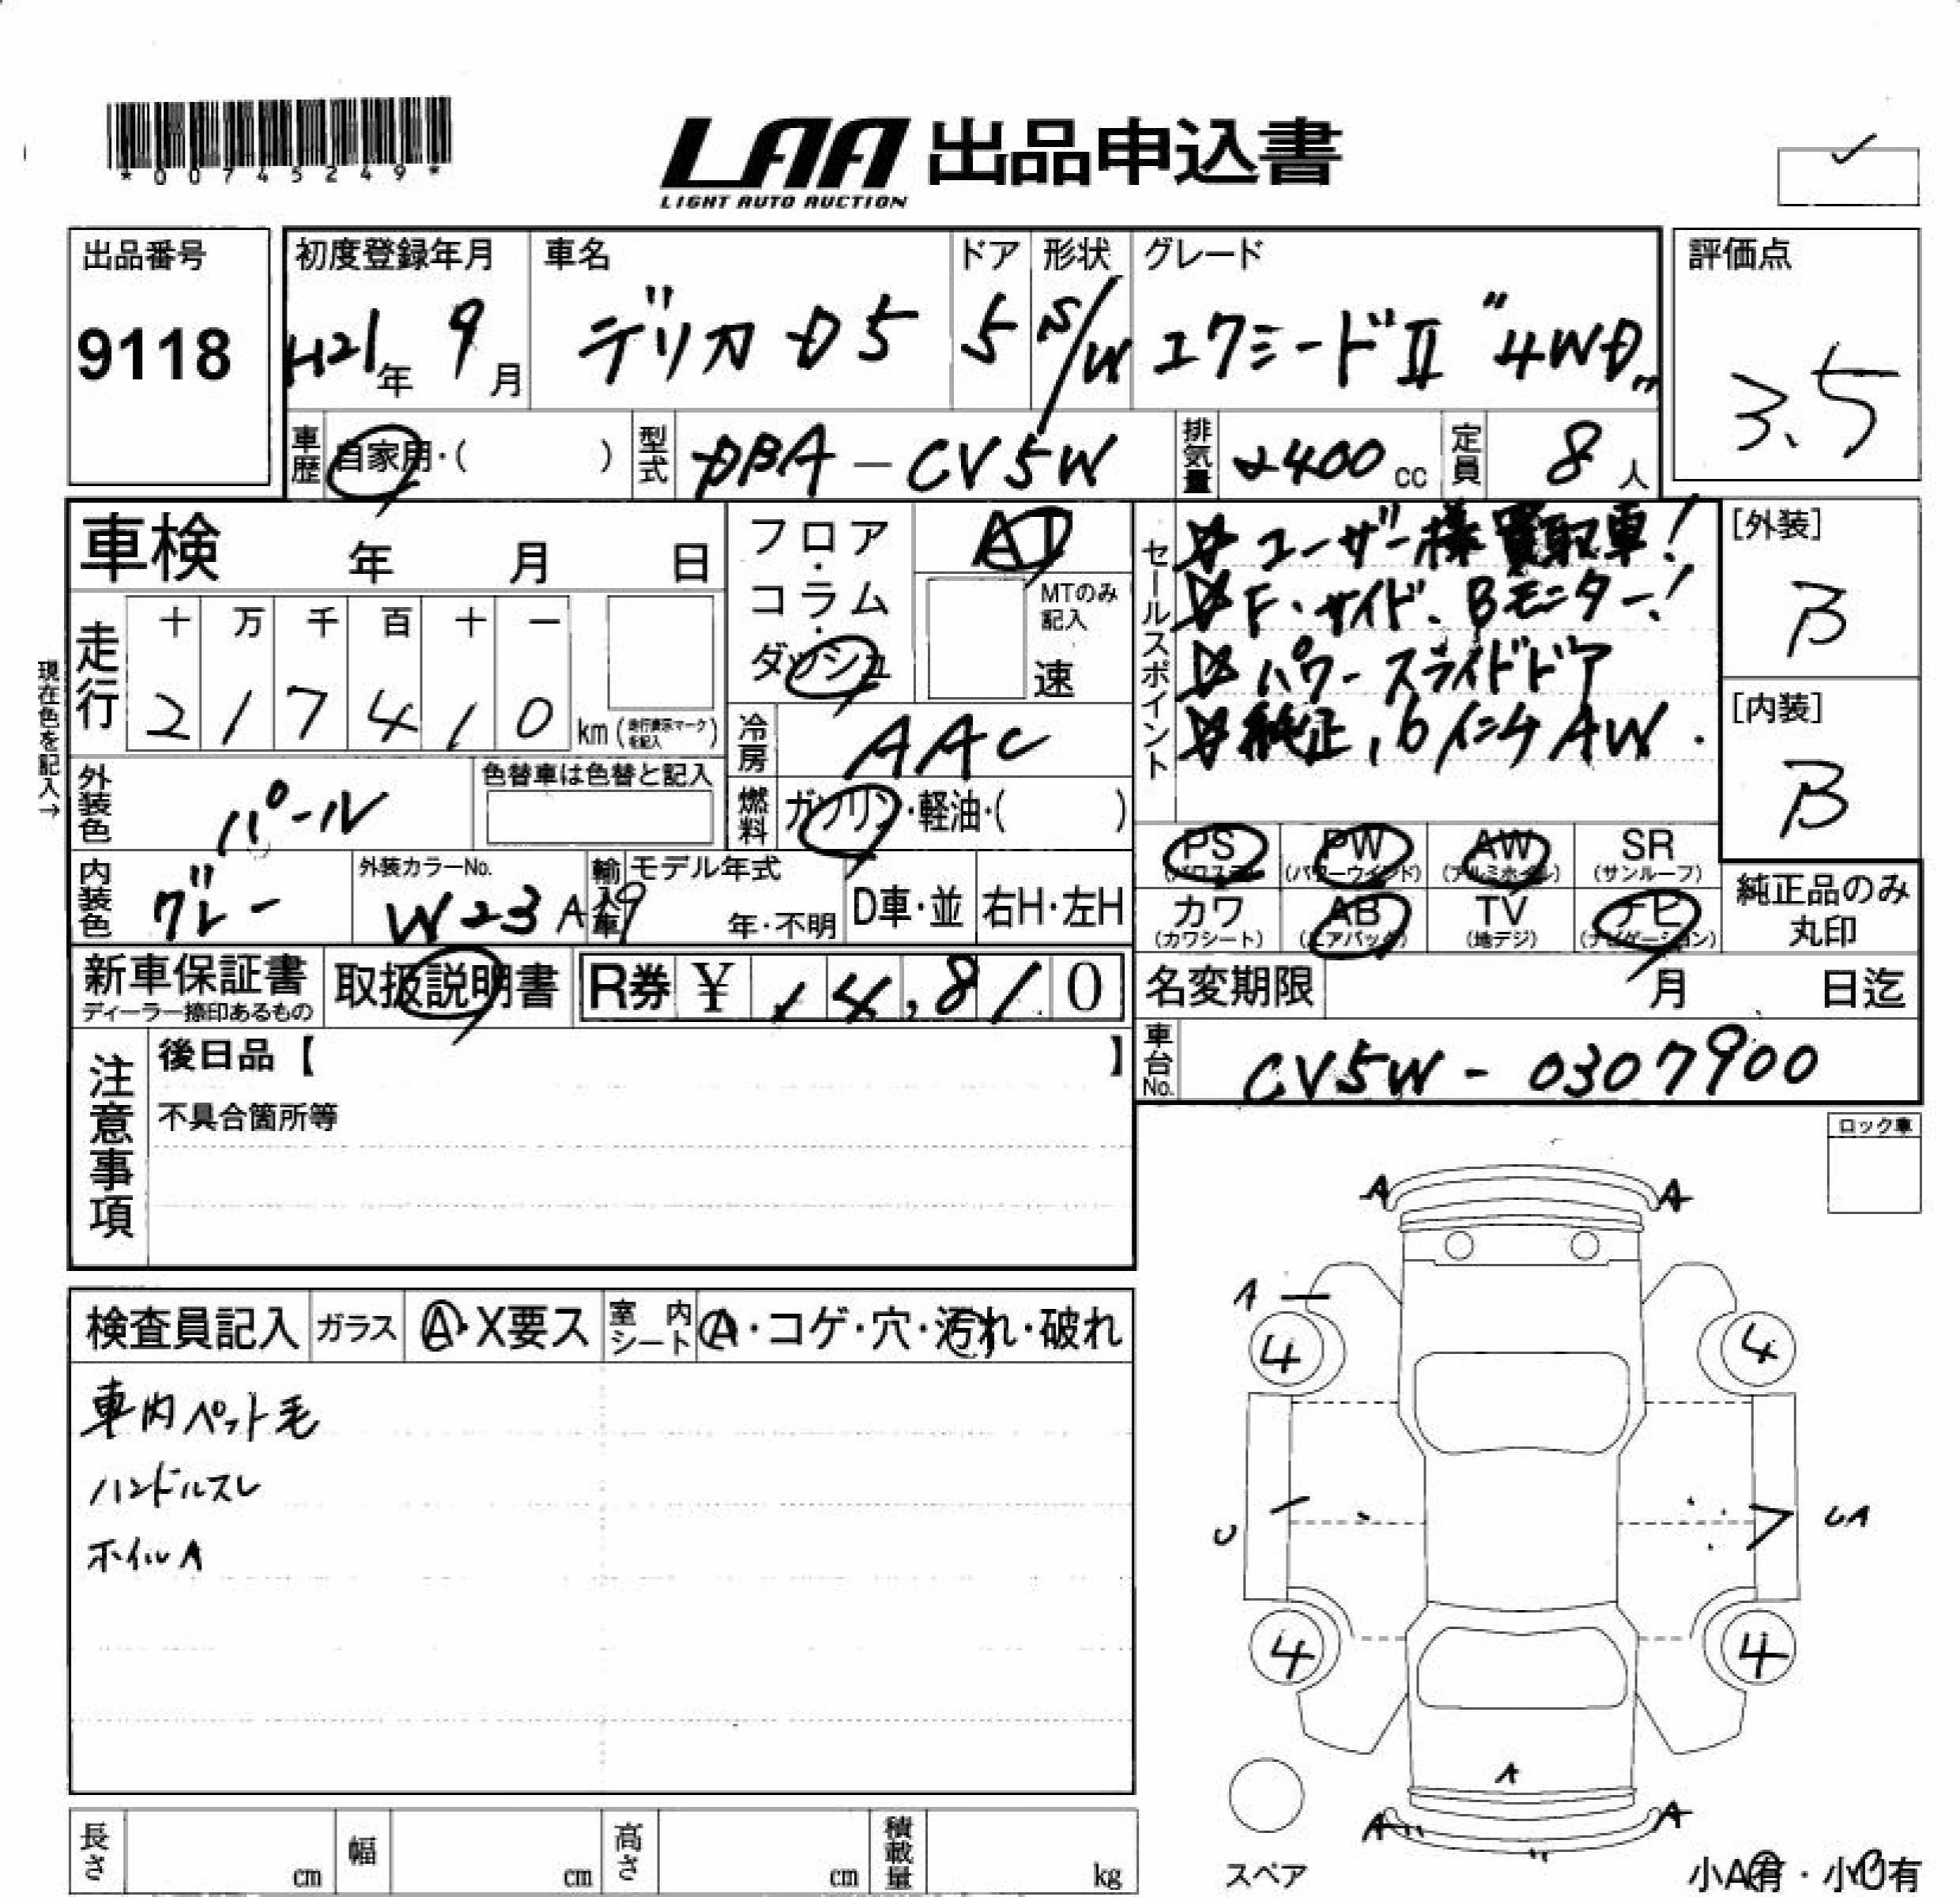 *00745249*
LAA 出品申込書
LIGHT AUTO AUCTION
出品番号
9118
初度登録年月
H21年 9月
車名
デリカ D5
ドア
5
形状
S/W
グレード
エクシードⅡ "4WD"
評価点
3.5
車歴
自家用・( )
型式
DBA-CV5W
排気量
2400cc
定員
8人
車検 年 月 日
フロア・コラム・ダッシュ
AT
MTのみ記入
速
走行
十 万 千 百 十 一
2 1 7 4 1 0 km
現在色を記入→
冷房
AAC
外装色
パール
色替車は色替と記入
燃料
ガソリン・軽油・( )
内装色
グレー
外装カラーNo.
W23A
輸入車
19
モデル年式
年・不明
D車・並
右H・左H
セールスポイント
ユーザー様買取車!
F・サイド、Bモニター!
パワースライドドア
純正16インチAW.
[外装]
B
[内装]
B
PS
(パワステ)
PW
(パワーウインド)
AW
(アルミホイル)
SR
(サンルーフ)
カワ
(カワシート)
AB
(エアバック)
TV
(地デジ)
ナビ
(ナビゲーション)
純正品のみ
丸印
新車保証書
ディーラー捺印あるもの
取扱説明書
R券 ¥ 14,810
名変期限 月 日迄
車台No.
CV5W-0307900
注意事項
後日品【 】
不具合箇所等
ロック車
検査員記入
ガラス
A・X要ス
室内シート
A・コゲ・穴・汚れ・破れ
車内ペット毛
ハンドルスレ
ホイルA
A A
A
4 4
U UA
4 4
A
A A
スペア
小A有・小U有
長さ cm
幅 cm
高さ cm
積載量 kg